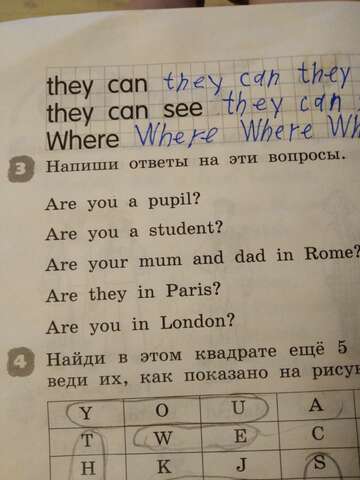 they can they can they
they can see they can
Where Where Where Wh
3 Напиши ответы на эти вопросы.
Are you a pupil?
Are you a student?
Are your mum and dad in Rome?
Are they in Paris?
Are you in London?
4 Найди в этом квадрате ещё 5
веди их, как показано на рису
Y O U A
T W E C
H K J S